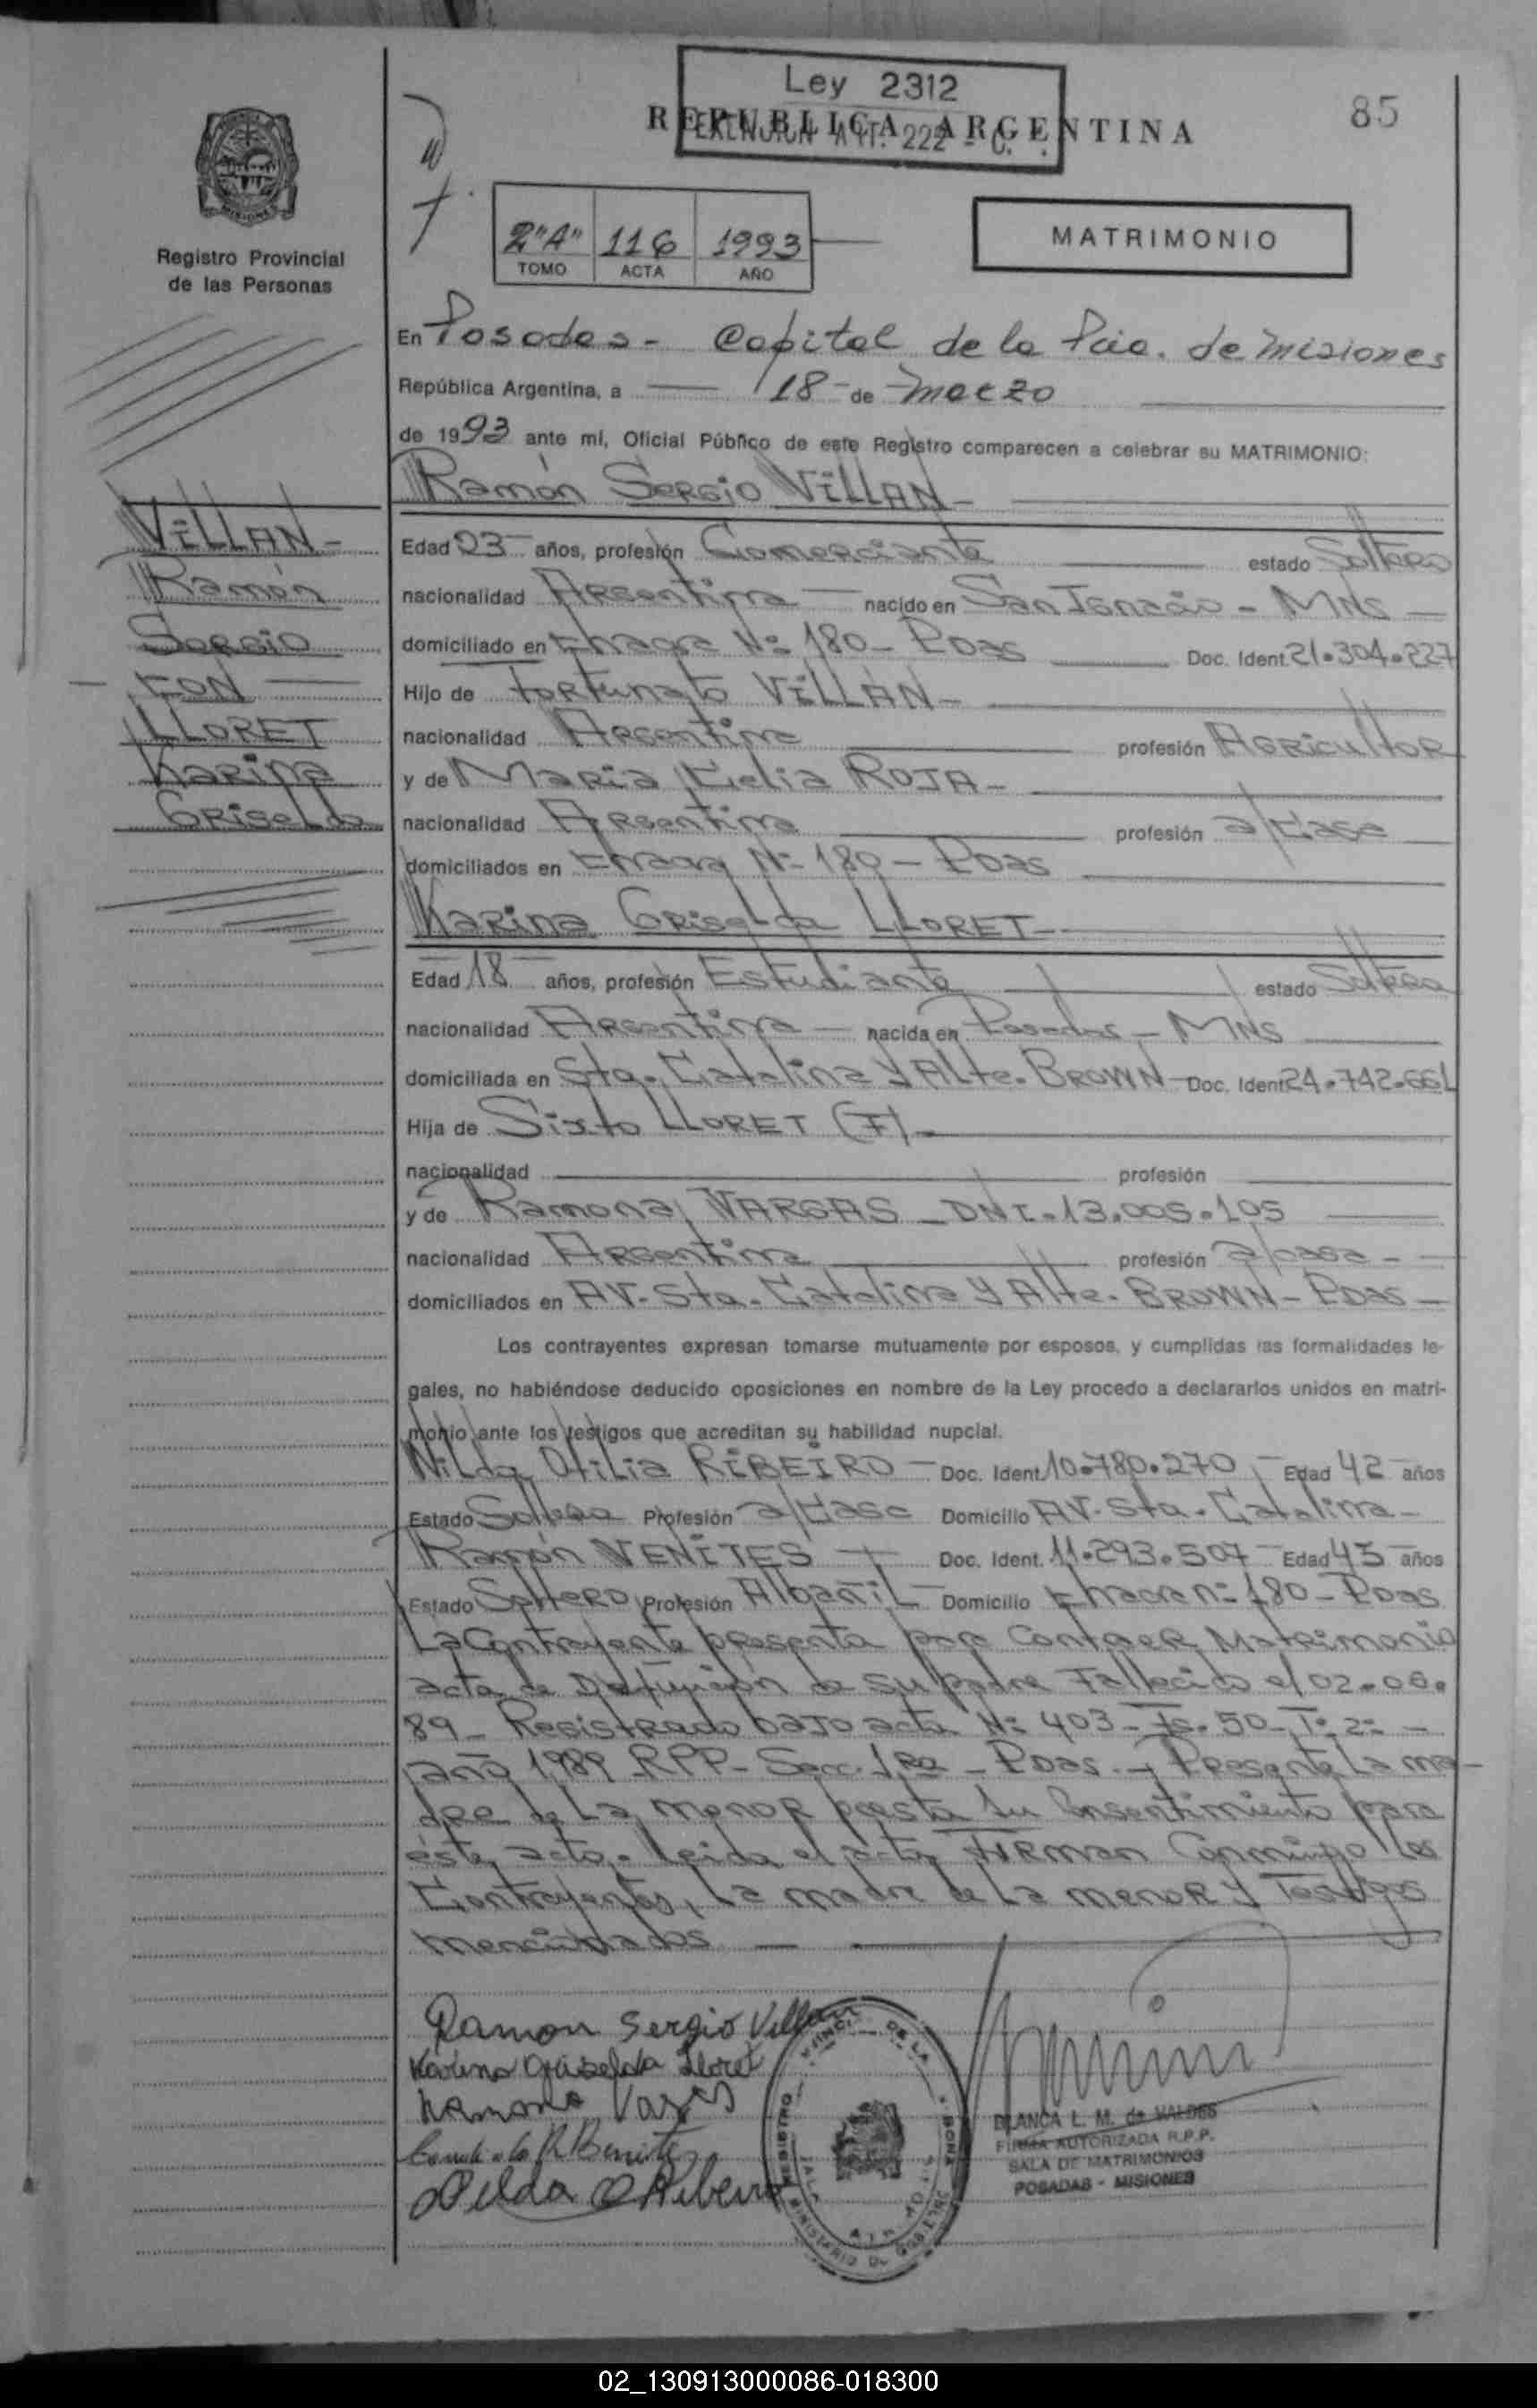 Ley 2312
REPUBLICA ARGENTINA
EXENCION ART. 222 - C.
85
MISIONES
Registro Provincial
de las Personas
2"A" 116 1993
TOMO ACTA AÑO
MATRIMONIO
En Posadas - Capital de la Pcia. de Misiones
República Argentina, a 18 - de - marzo
de 1993 ante mí, Oficial Público de este Registro comparecen a celebrar su MATRIMONIO:
Ramón Sergio VILLAN -
VILLAN -
Ramón
Sergio
- CON -
LLORET
Karina
Griselda
Edad 23 años, profesión Comerciante estado Soltero
nacionalidad Argentina - nacido en San Ignacio - MNS -
domiciliado en Chacra Nº 180 - Pdas Doc. Ident. 21.304.227
Hijo de Fortunato VILLAN -
nacionalidad Argentina profesión Agricultor
y de Maria Celia ROJA -
nacionalidad Argentina profesión a/casa
domiciliados en Chacra Nº 180 - Pdas
Karina Griselda LLORET -
Edad 18 años, profesión Estudiante estado Soltera
nacionalidad Argentina - nacida en Posadas - MNS
domiciliada en Sta. Catalina y Alte. BROWN - Doc. Ident. 24.742.661
Hija de Sixto LLORET (F) -
nacionalidad profesión
y de Ramona VARGAS - DNI. 13.005.105
nacionalidad Argentina profesión a/casa -
domiciliados en AV. Sta. Catalina y Alte. BROWN - Pdas -
Los contrayentes expresan tomarse mutuamente por esposos, y cumplidas las formalidades le-
gales, no habiéndose deducido oposiciones en nombre de la Ley procedo a declararlos unidos en matri-
monio ante los testigos que acreditan su habilidad nupcial.
Nilda Otilia RIBEIRO - Doc. Ident. 10.780.270 - Edad 42 años
Estado Soltera Profesión a/casa Domicilio AV. Sta. Catalina -
Ramón VENITES - Doc. Ident. 11.293.507 - Edad 43 años
Estado Soltero Profesión Albañil - Domicilio Chacra nº 180 - Pdas
La Contrayente presenta para Contraer Matrimonio
acta de Defunción de su padre Fallecido el 02.06.
89 - Registrado bajo acta Nº 403 - Fs. 50 - Tº 2º -
año 1989 - RPP - Secc. 1ra - Pdas. - Presente La ma-
dre de La menor presta su Consentimiento para
éste acto. Leida el acta FIRMAN Conmigo los
Contrayentes, La madre de La menor y Testigos
mencionados -
Ramon Sergio Villan
Karina Griselda Lloret
Ramona Vargas
R Benitez
Nilda O Ribeiro
BLANCA L. M. de VALDES
FIRMA AUTORIZADA R.P.P.
SALA DE MATRIMONIOS
POSADAS - MISIONES
02_130913000086-018300